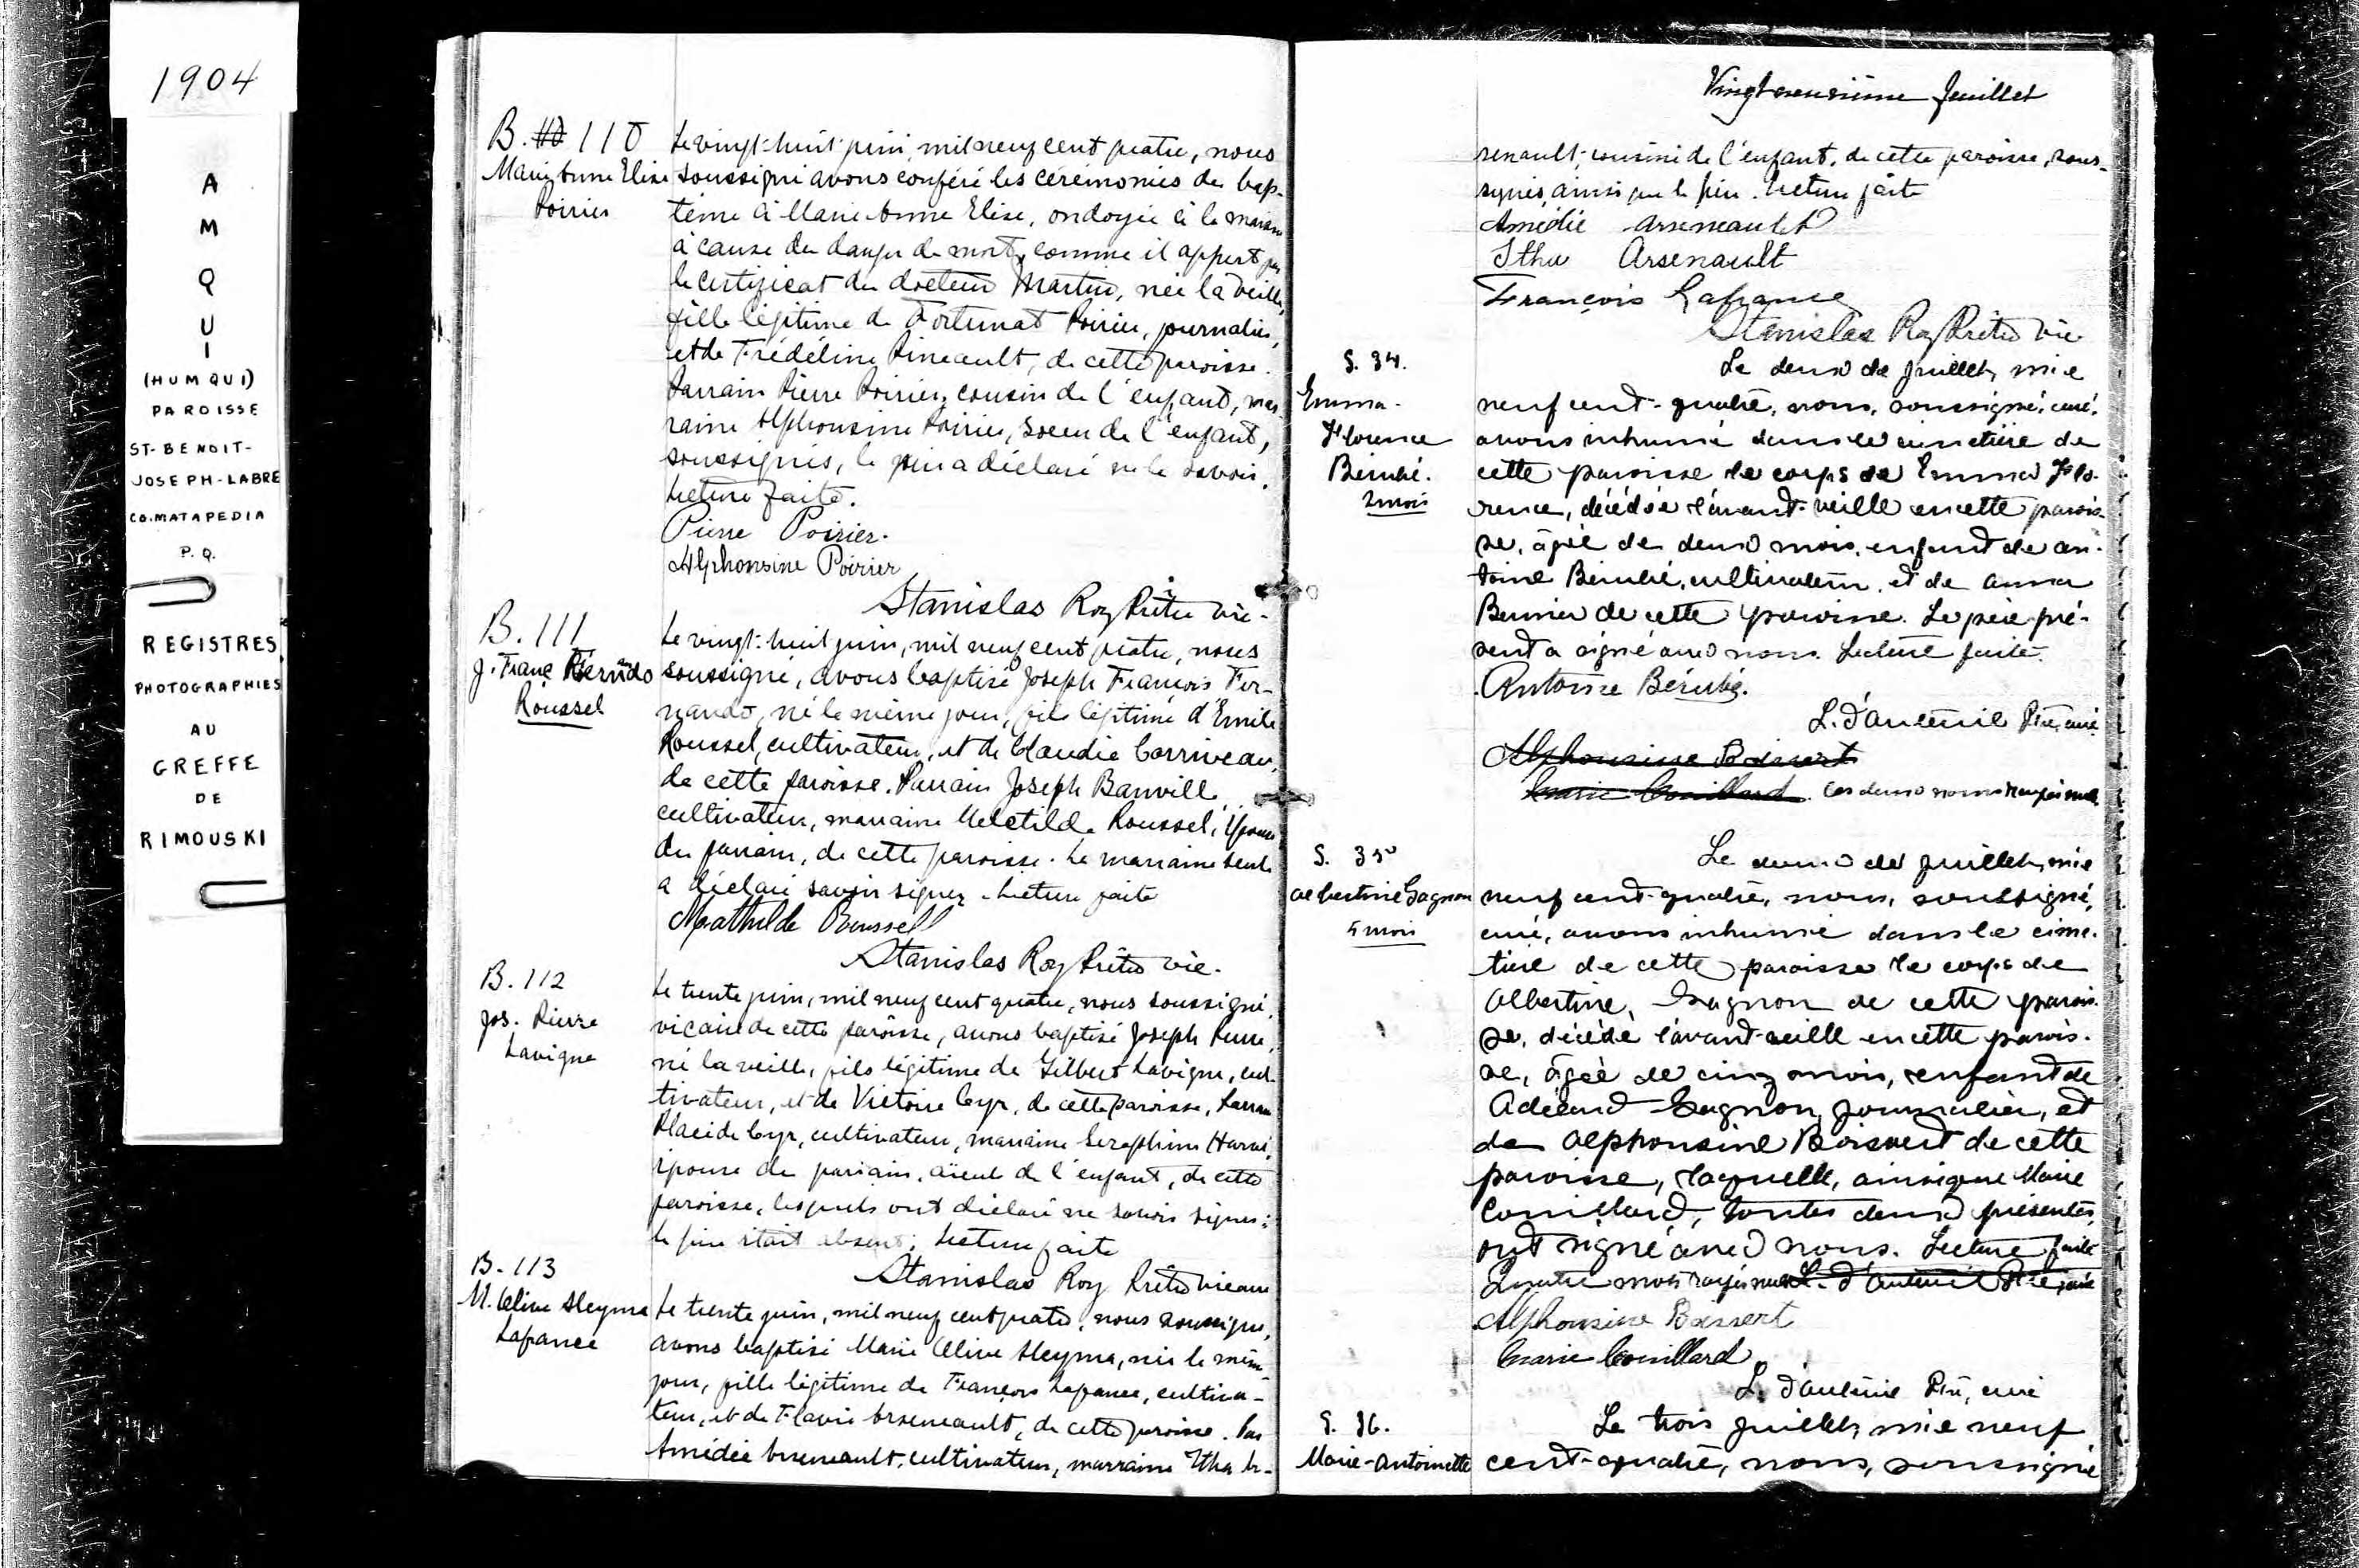 1904
A
M
Q
U
I
(HUMQUI)
PAROISSE
ST-BENOIT-
JOSEPH-LABRE
CO. MATAPEDIA
P.Q.
REGISTRES
PHOTOGRAPHIES
AU
GREFFE
DE
RIMOUSKI
B. 110
Marie Anne Elise
Poirier
Le vingt-huit juin, mil neuf cent quatre, nous
soussigné avons conféré les cérémonies du bap-
tême à Marie Anne Elise, ondoyée à la maison
à cause du danger de mort, comme il appert par
le certificat du docteur Martin, née la veille,
fille légitime de Fortunat Poirier, journalier,
et de Frédéline Pineault, de cette paroisse.
Parrain Pierre Poirier, cousin de l'enfant, mar-
raine Alphonsine Poirier, soeur de l'enfant,
soussignés, le père a déclaré ne le savoir.
Lecture faite.
Pierre Poirier.
Alphonsine Poirier
Stanislas Roy Ptre vic.
B. 111
J. Franç Fernando
Roussel
Le vingt-huit juin, mil neuf cent quatre, nous
soussigné, avons baptisé Joseph François Fer-
nando, né le même jour, fils légitime d'Emile
Roussel, cultivateur, et de Claudie Corriveau,
de cette paroisse. Parrain Joseph Banville
cultivateur, marraine Roussel, épouse
du parrain, de cette paroisse. La marraine seule
a déclaré savoir signer. Lecture faite
Mathilde Roussel
Stanislas Roy Ptre vic.
B. 112
Jos. Pierre
Lavigne
Le trente juin, mil neuf cent quatre, nous soussigné,
vicaire de cette paroisse, avons baptisé Joseph Pierre,
né la veille, fils légitime de Gilbert Lavigne, cul-
tivateur, et de Victoire Cyr, de cette paroisse, Parrain
Placide Cyr, cultivateur, marraine Séraphine
épouse du parrain, aïeul de l'enfant, de cette
paroisse, lesquels ont déclaré ne savoir signer;
le père était absent. Lecture faite
Stanislas Roy Ptre vicaire
B. 113
M. Céline
Lafrance
Le trente juin, mil neuf cent quatre, nous soussigné,
avons baptisé Marie Céline née le même
jour, fille légitime de François Lafrance, cultiva-
teur, et de Flavie Arseneault, de cette paroisse. Par
Amédée Arseneault, cultivateur, marraine Itha Ar-
Vingt-neuvième feuillet
senault, cousins de l'enfant, de cette paroisse, sous-
signés, ainsi que le père. Lecture faite
Amédée Arseneault
Itha Arsenault
François Lafrance
Stanislas Roy Ptre vic
S. 34.
Emma-
Florence
Bérubé.
2 mois
Le deux de juillet, mil
neuf cent-quatre, nous, soussigné, curé,
avons inhumé dans le cimetière de
cette paroisse le corps de Emma Flo-
rence, décédée l'avant-veille en cette parois-
se, âgée de deux mois, enfant de An-
toine Bérubé, cultivateur, et de Anna
Bernier de cette paroisse. Le père pré-
sent a signé avec nous. Lecture faite.
Antoine Bérubé.
L. d'Auteuil Ptre, curé
Alphonsine Boisvert
Marie Couillard Ces deux noms rayés nuls
S. 35
Albertine Gagnon
5 mois
Le deux de juillet, mil
neuf cent-quatre, nous, soussigné,
curé, avons inhumé dans le cime-
tière de cette paroisse le corps de
Albertine, Gagnon de cette parois-
se, décédé l'avant-veille en cette parois-
se, âgée de cinq mois, enfant de
Adélard Gagnon, journalier, et
de Alphonsine Boisvert de cette
paroisse, laquelle, ainsi que Marie
Couillard, toutes deux présentes,
ont signé avec nous. Lecture faite
Quatre mots rayés nuls L. d'Auteuil Ptre, curé
Alphonsine Boisvert
Marie Couillard
L. d'Auteuil Ptre, curé
S. 36.
Marie-Antoinette
Le trois juillet, mil neuf
cent-quatre, nous, soussigné